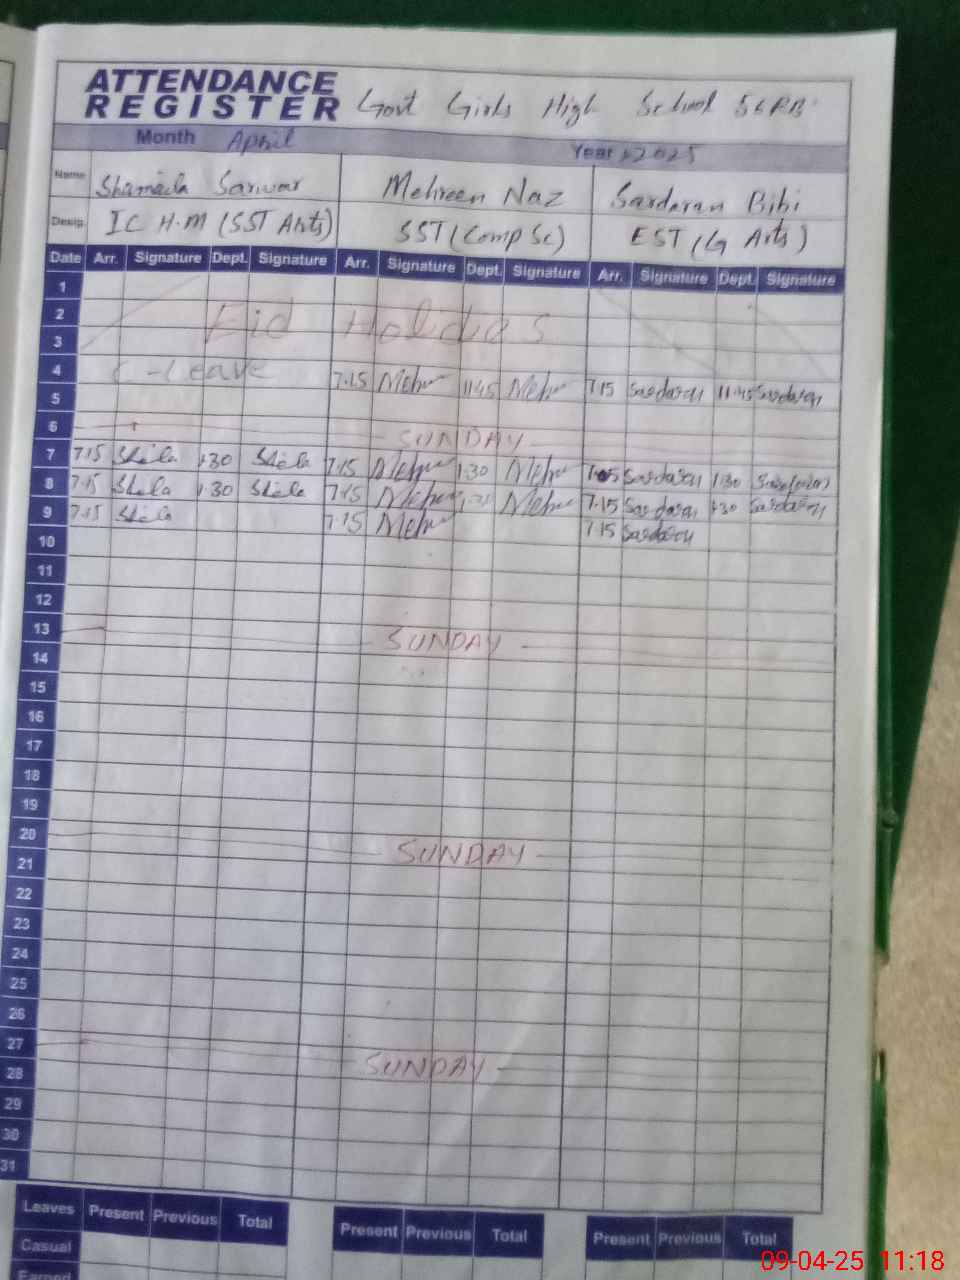 ATTENDANCE
REGISTER Govt Girls High School 56RB
Month April Year 2025
Name Shamaila Sarwar Mehreen Naz Sardaran Bibi
Desig. IC H.M (SST Arts) SST (Comp Sc) EST (G Arts)
Date Arr. Signature Dept. Signature Arr. Signature Dept. Signature Arr. Signature Dept. Signature
1
2 Eid Holidies
3
4 C-Leave 7.15 11.45 7.15 Sardaran 11.45 Sardaran
5
6 SUNDAY
7 7.15 1.30 7.15 1.30 Sardaran 1.30
8 7.15 1.30 7.15 7.15 Sardaran 1.30 Sardaran
9 7.15 7.15 7.15 Sardaran
10
11
12
13 SUNDAY
14
15
16
17
18
19
20 SUNDAY
21
22
23
24
25
26
27 SUNDAY
28
29
30
31
Leaves Present Previous Total Present Previous Total Present Previous Total
Casual
Earned
09-04-25 11:18